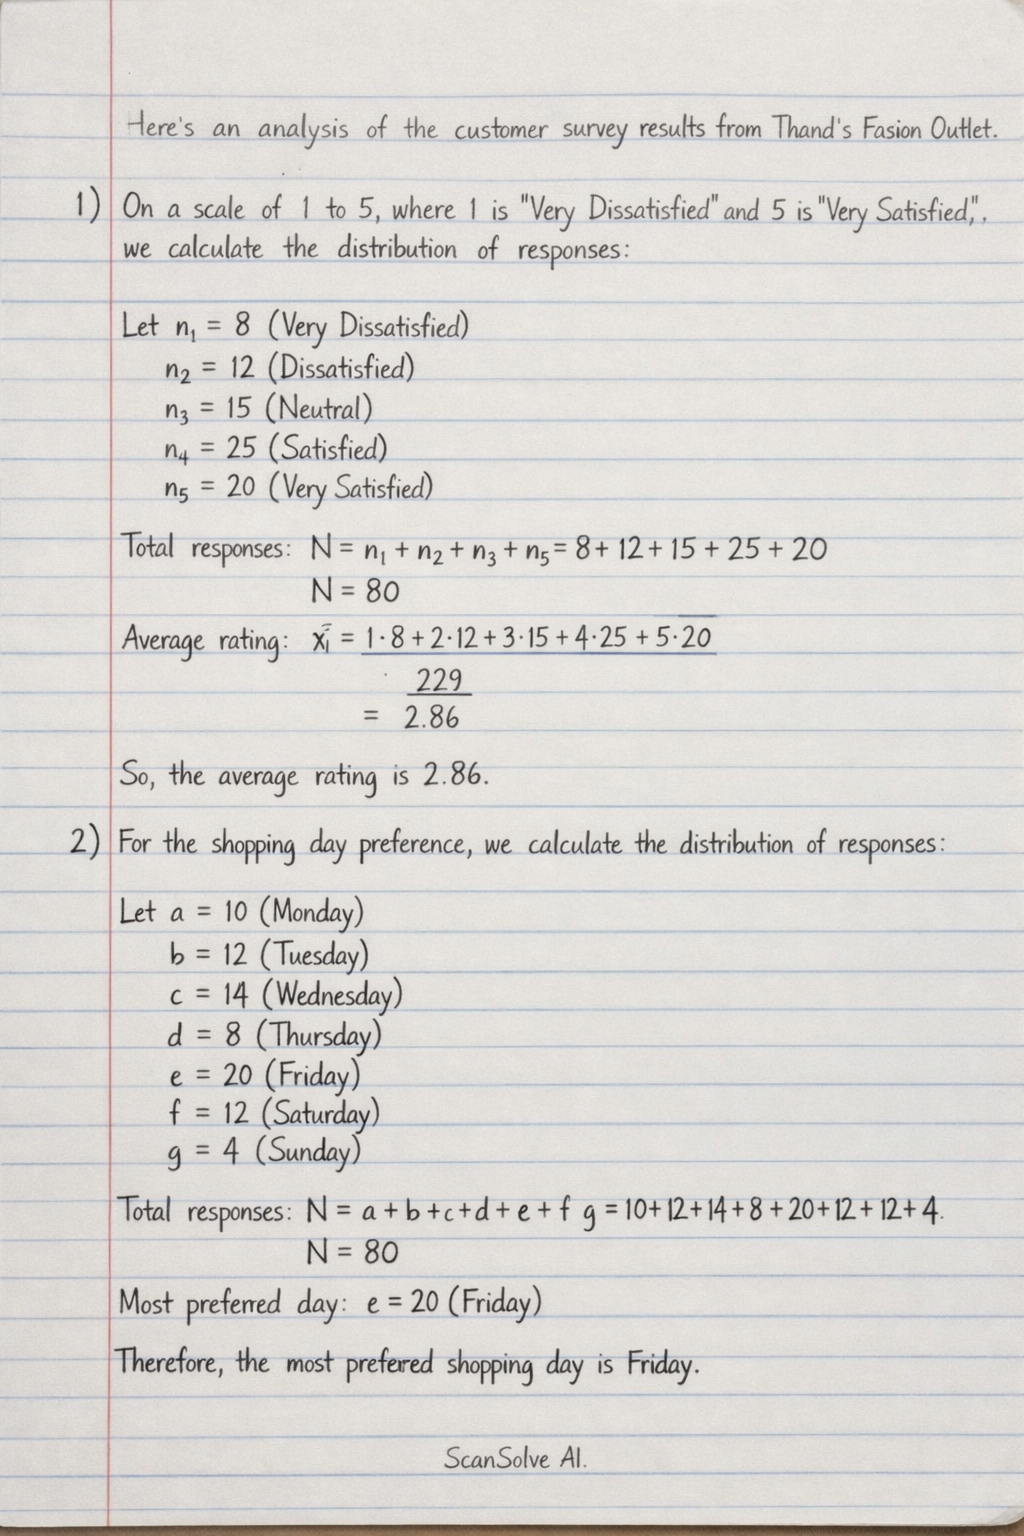 Here's an analysis of the customer survey results from Thand's Fasion Outlet.
1) On a scale of 1 to 5, where 1 is "Very Dissatisfied" and 5 is "Very Satisfied,".
we calculate the distribution of responses:
Let n₁ = 8 (Very Dissatisfied)
n₂ = 12 (Dissatisfied)
n₃ = 15 (Neutral)
n₄ = 25 (Satisfied)
n₅ = 20 (Very Satisfied)
Total responses: N = n₁ + n₂ + n₃ + n₅ = 8 + 12 + 15 + 25 + 20
N = 80
Average rating: x̄₁ = 1·8 + 2·12 + 3·15 + 4·25 + 5·20
229
= 2.86
So, the average rating is 2.86.
2) For the shopping day preference, we calculate the distribution of responses:
Let a = 10 (Monday)
b = 12 (Tuesday)
c = 14 (Wednesday)
d = 8 (Thursday)
e = 20 (Friday)
f = 12 (Saturday)
g = 4 (Sunday)
Total responses: N = a + b + c + d + e + f g = 10 + 12 + 14 + 8 + 20 + 12 + 12 + 4.
N = 80
Most preferred day: e = 20 (Friday)
Therefore, the most prefered shopping day is Friday.
ScanSolve AI.